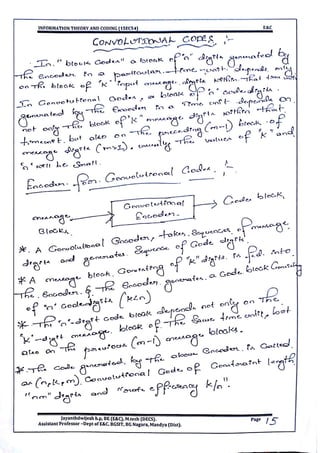 INFORMATION THEORY AND CODING (15EC54) E&C
CONVOLUTIONAL CODES :-
In "block Codes" a block of 'n' digits generated by
The Encoder in a particular time-unit depends only
on The block of 'K' input message digits within That time unit.
In Convolutional Codes, a block of 'n' code digits
generated by The Encoder in a Time unit depends on
not only The block of 'K' message digits within that
time unit, but also on The preceding (m-1) block of
message digits (m>1). usually The values of 'K' and
'n' will be Small.
Encoder for Convolutional Codes :-
message
Blocks.
Convolutional
Encoder
Code block.
* A Convolutional Encoder, takes Sequence of message
digits and generates Sequence of Code digits.
* A message block Consisting of 'K' digits is fed into
The Encoder & The Encoder generates a Code block Consisting
of 'n' Code digits (K<n)
* The 'n'-digit code block depends not only on The
'K'-digit message block of The Same time unit, but
also on The previous (m-1) message blocks.
* The code generated by The above Encoder is Called
as (n,k,m) Convolutional Code of Constraint length
"nm" digits and "rate efficiency k/n".
Jayanthdwijesh h.p, BE (E&C), M.tech (DECS).
Assistant Professor –Dept of E&C, BGSIT, BG Nagara, Mandya (Dist).
Page 15